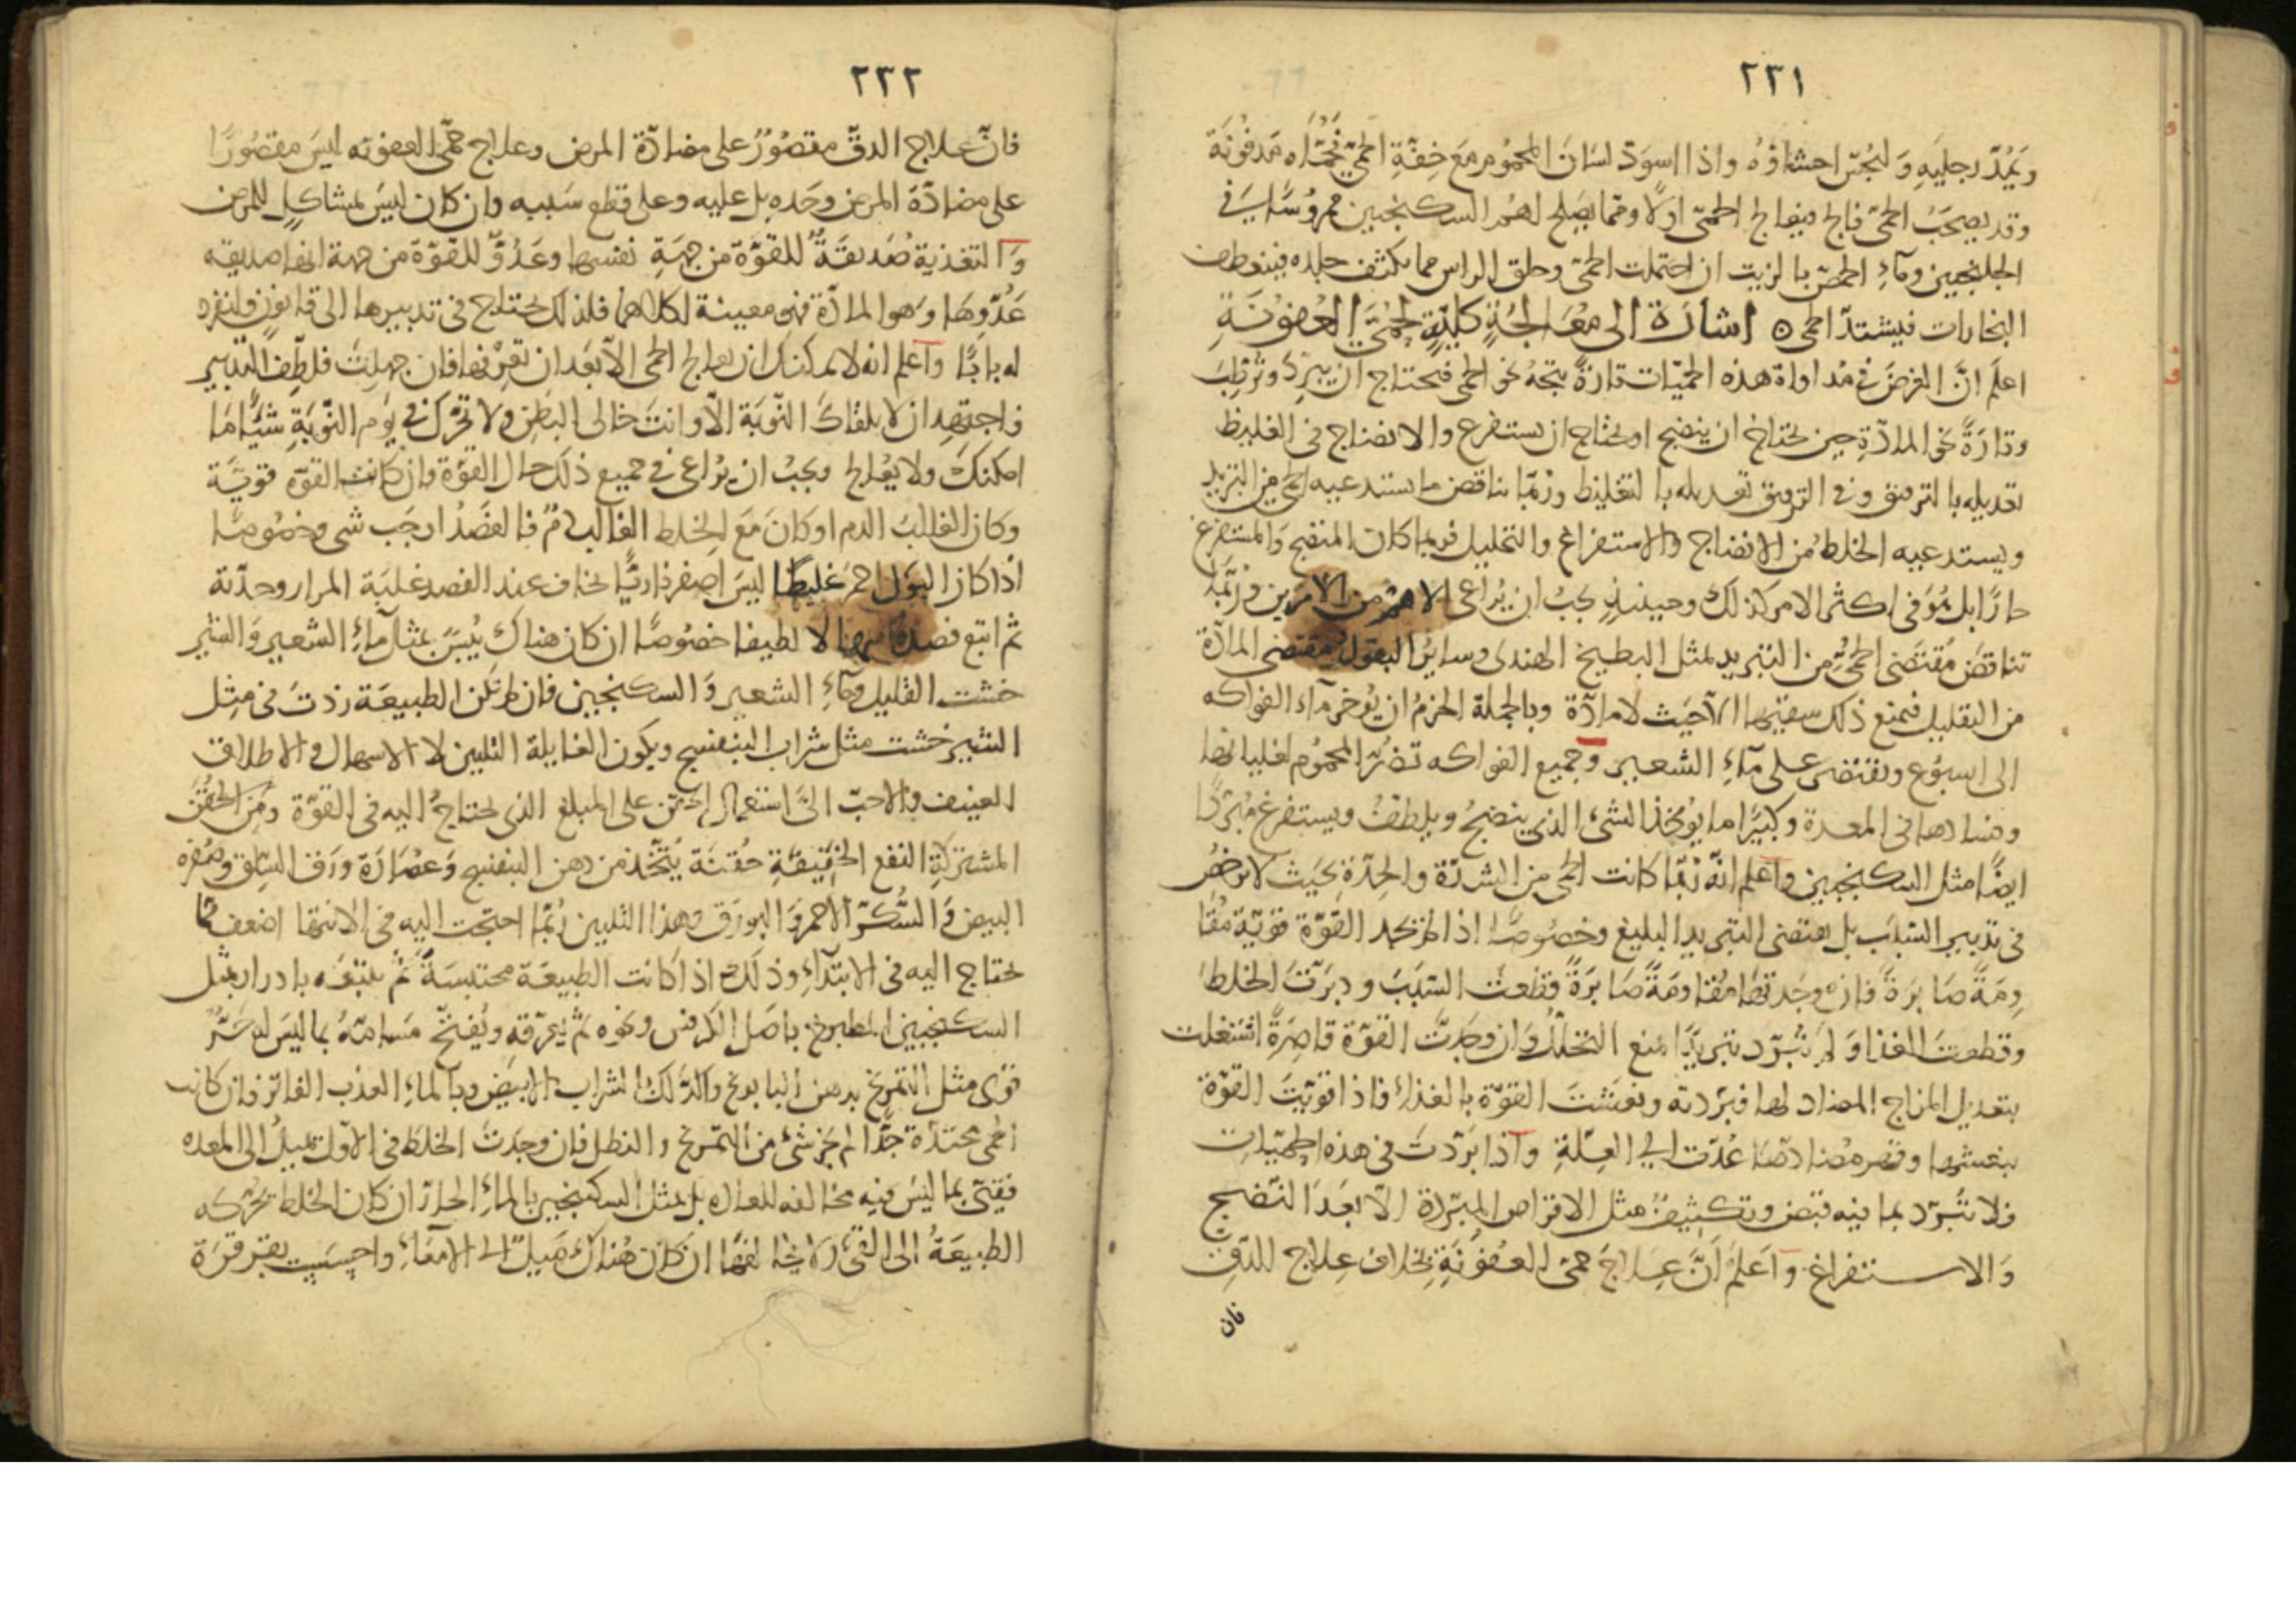 ٢٣١
ويمد رجليه و لتجس احشاؤه واذا اسود لسان المحموم مع خفة الحمى فحماه مدفونة
وقد يصحب الحمى فالج فيعالج الحمى اولا ومما يصلح لهم السكنجبين ممروسا في
الجلنجبين وماء الحمص بالزيت ان احتملت الحمى وحلق الراس مما يكثف جلده فينعطف
البخارات فيشتد الحمى ه اشارة الى معالجة كلية لحمى العفونة
اعلم ان الغرض في مداواة هذه الحميات تارة يتجه نحو الحمى فيحتاج ان يبرد وترطب
وتارة نحو المادة حين يحتاج ان ينضج او يحتاج ان يستفرغ والانضاج في الغليظ
تعديله بالترقيق وفي الرقيق تعديله بالتغليظ وربما يناقض ما يستدعيه الحمى من التبريد
ويستدعيه الخلط من الانضاج والاستفراغ والتحليل فربما كان المنضج والمستفرغ
حارا بل هو في اكثر الامر كذلك وحينئذ يجب ان يراعى الاهم من الامرين وربما
تناقض مقتضى الحمى من التبريد بمثل البطيخ الهندى وساير البقول مقتضى المادة
من التقليل فيمنع ذلك سقيها الا حيث لا مادة وبالجملة الحزم ان يؤخر ماء الفواكه
الى اسبوع ويقتصر على ماء الشعير وجميع الفواكه تضر المحموم لغليانها
وفسادها في المعدة وكثيرا ما يؤخذ الشئ الذي ينضج ويلطف ويستفرغ مبردا
ايضا مثل السكنجبين واعلم انه ربما كانت الحمى من الشدة والحدة بحيث لا ترخص
في تدبير السبب بل يقتضى التبريد البليغ وخصوصا اذا لم تجد القوة قوية مقا
ومة صابرة فان وجدتها مقاومة صابرة قطعت السبب ودبرت الخلط
وقطعت الغذا و لم تبرد تبريدا يمنع التحلل وان وجدت القوة قاصرة اشتغلت
بتعديل المزاج المضاد لها فبردته ونعشت القوة بالغذاء فاذا قويت القوة
بنعشها وقهر مضادها عدت الى العلة واذا بردت في هذه الحميات
فلا تبرد بما فيه قبض وتكثيف مثل الاقراص المبردة الا بعد النضج
والاستفراغ واعلم ان علاج حمى العفونة بخلاف علاج الدق
فان
٢٣٢
فان علاج الدق مقصور على مضادة المرض وعلاج حمى العفونه ليس مقصورا
على مضادة المرض وحده بل عليه وعلى قطع سببه وان كان ليس بمشاكل للمرض
والتغذية صديقة للقوة من جهة نفسها وعدو للقوة من جهة انها صديقه
عدوها وهو المادة فهى معينة لكلاهما فلذلك يحتاج في تدبيرها الى قانون ولنفرد
له بابا واعلم انه لا يمكنك ان تعالج الحمى الا بعد ان تعرفها فان جهلت فلطف التدبير
واجتهد ان لا يلقاك النوبة الا وانت خالى البطن ولا تحرك في يوم النوبة شيئا ما
امكنك ولا يعالج ويجب ان يراعى في جميع ذلك حال القوة وان كانت القوة قوية
وكان الغالب الدم او كان مع الخلط الغالب دم فالفصد اوجب شى وخصوصا
اذا كان البول احمر غليظا ليس اصفر ناريا يخاف عند الفصد غلبة المرار وحدته
ثم اتبع فصده اسهالا لطيفا خصوصا ان كان هناك يبس بمثل ماء الشعير والشير
خشت القليل وماء الشعير والسكنجبين فان لم تلن الطبيعة زدت في مثل
الشير خشت مثل شراب البنفسج ويكون الغاية التليين لا الاسهال والاطلاق
العنيف والاحب الى استعمال الحقن على المبلغ الذى يحتاج اليه في القوة ومن الحقن
المشتركة النفع الخفيفة حقنة يتخذ من دهن البنفسج وعصارة ورق السلق وصفره
البيض والسكر الاحمر والبورق وهذا التليين ربما احتجت اليه في الانتها اضعف مما
تحتاج اليه في الابتداء وذلك اذا كانت الطبيعة محتبسة ثم يتبعه بادرار بمثل
السكنجبين المطبوخ باصل الكرفس ونحوه ثم يعرقه ويفتح مسامته بما ليس له حر
قوى مثل التمريخ بدهن البابونج والدلك بالشراب الابيض وبالماء العذب الفاتر وان كانت
الحمى محتدة جدا لم يجز شئ من التمريخ والنطل فان وجدت الخلط في الاول تميل الى المعده
فقئ بما ليس فيه مخالفه للعاده بل بمثل السكنجبين بالماء الحار ان كان الخلط تحركه
الطبيعة الى القئ ان كان هناك ميل الى الامعاء واحسست بقرقرة